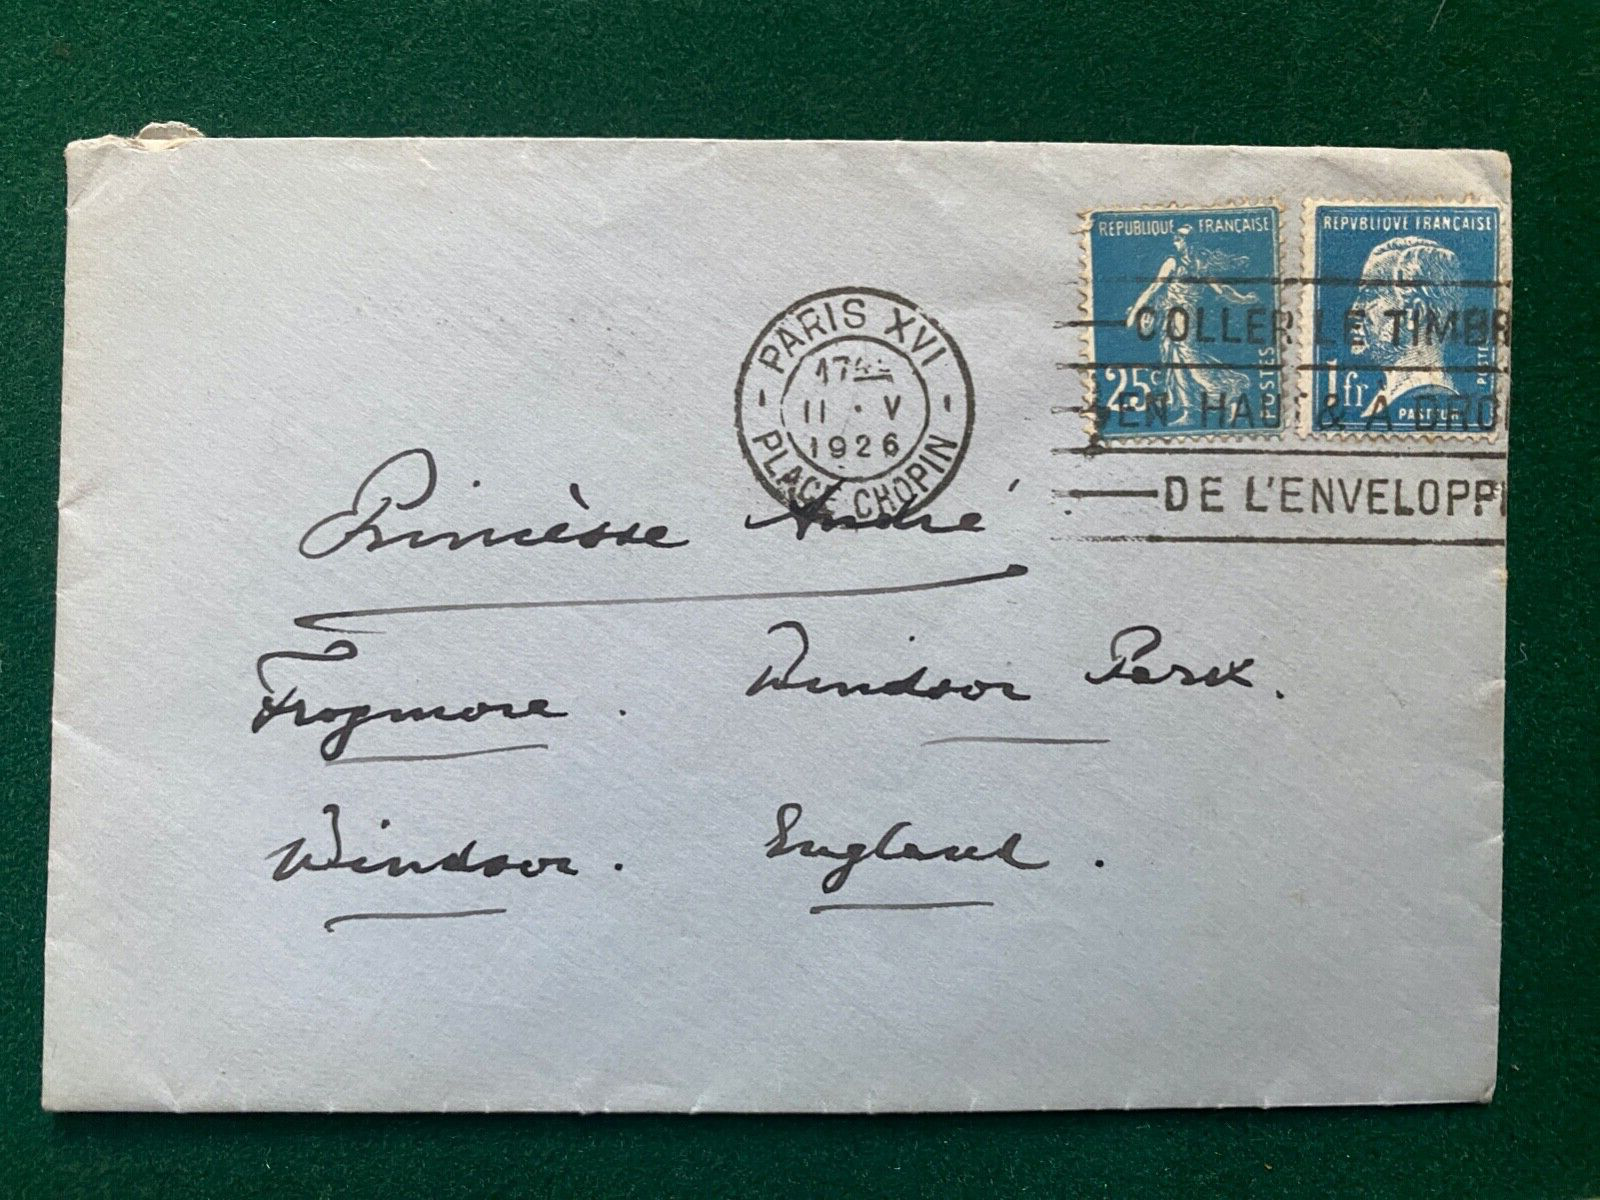 REPUBLIQUE FRANÇAISE
25c
POSTES
REPVBLIQVE FRANÇAISE
1fr
POSTES
PASTEUR
PARIS XVI
11 · V
1926
PLACE CHOPIN
COLLER LE TIMBR
EN HAUT & A DRO
DE L'ENVELOPP
Princèsse André
Frogmore. Windsor Park.
Windsor. England.